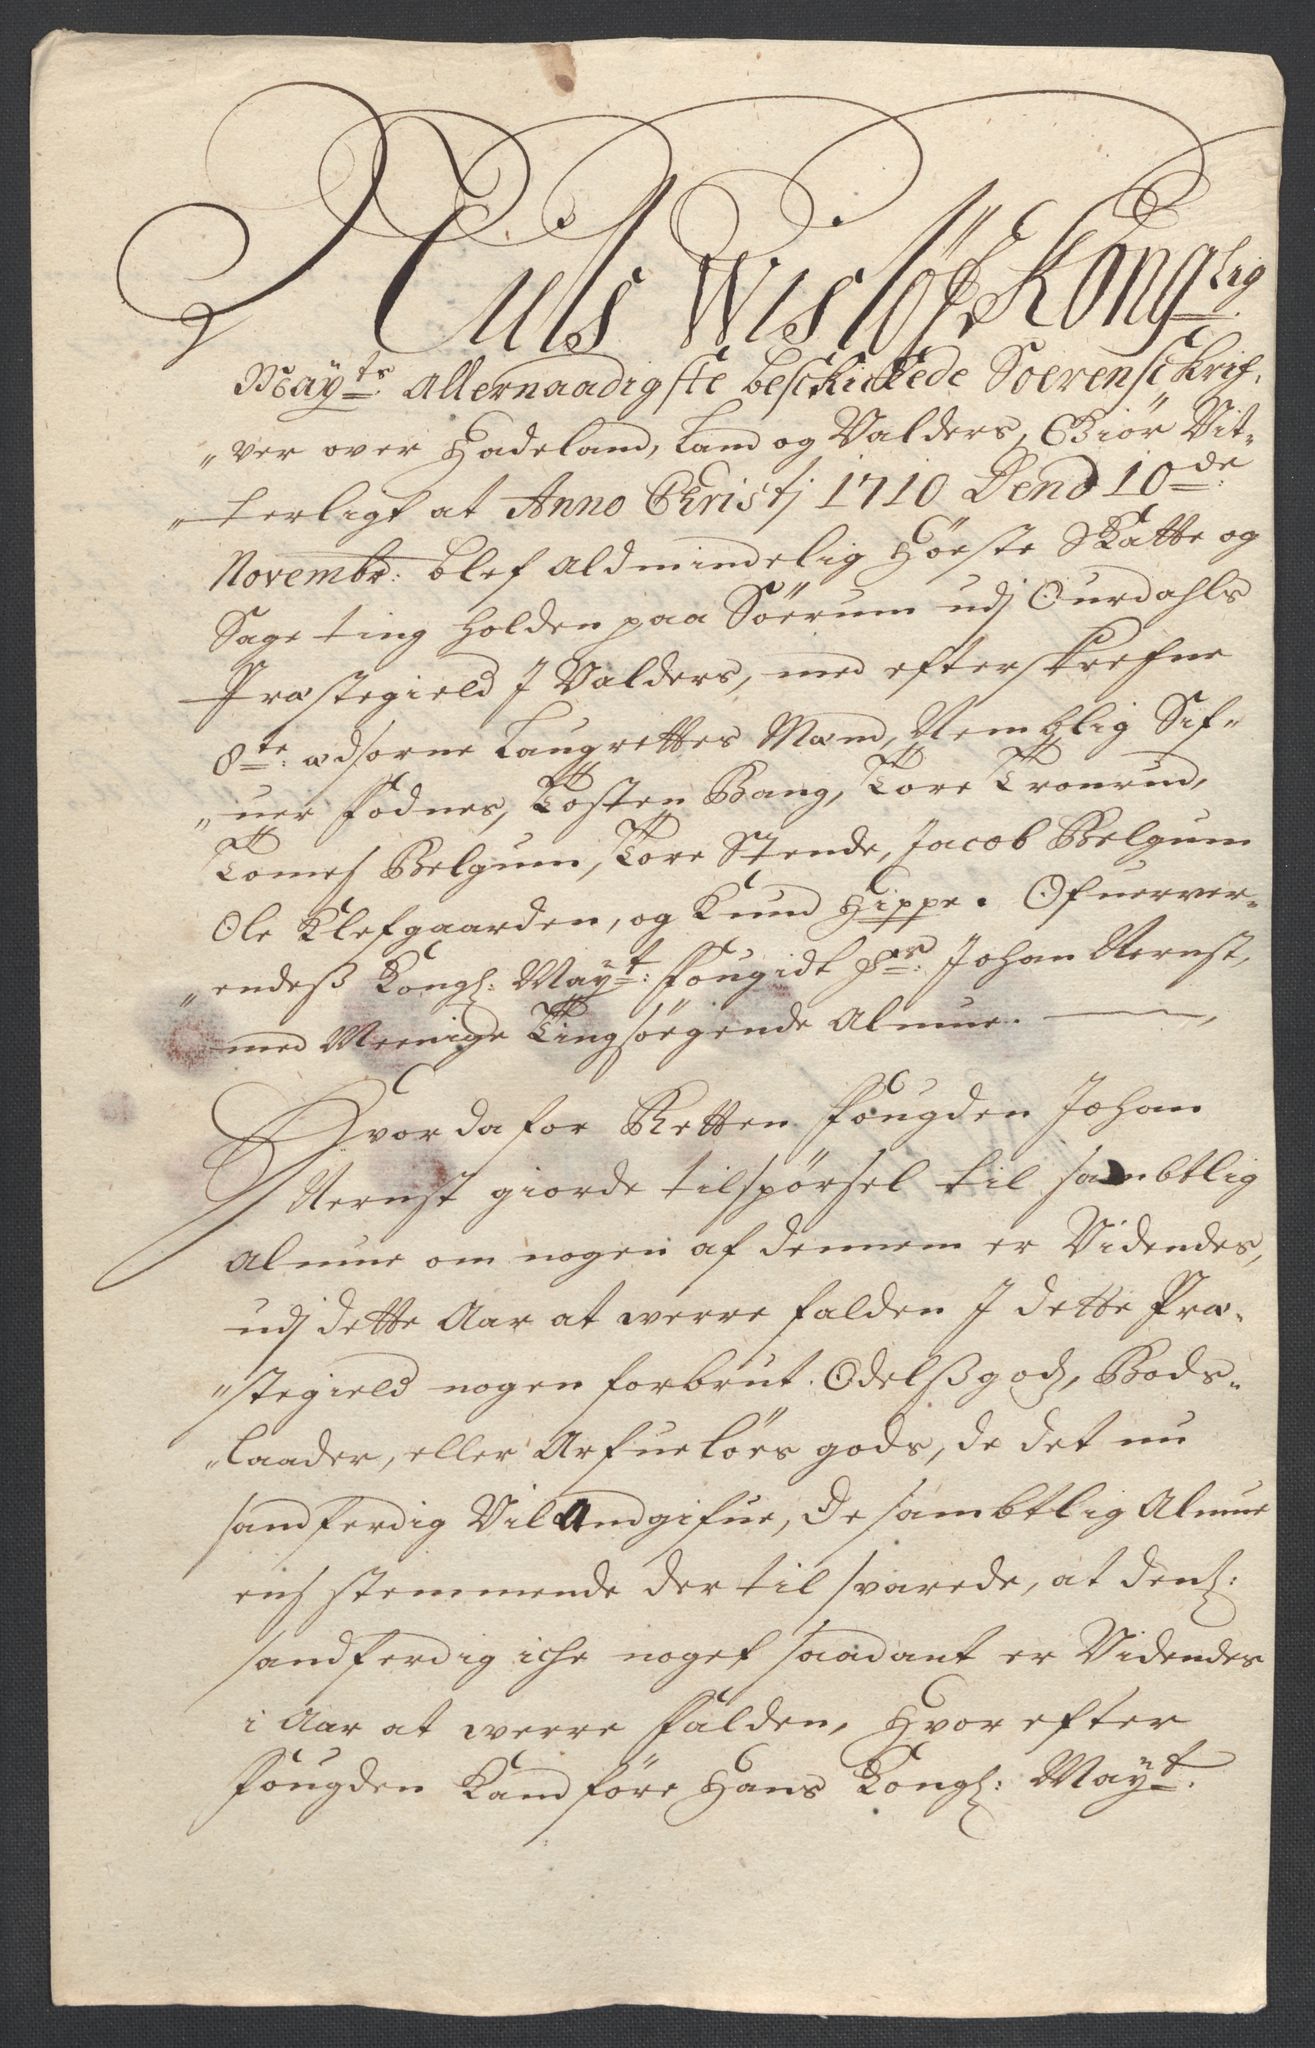 Niels Wisløf, Konglig
Mayts allernaadigste beschickede Soerenschrif,
„ver over Hadeland, Land og Valders, Giör Vit-
„terligt at Anno Christj 1710 Dend 10de:
Novembr: blef aldmindelig Høste Skatte og
Sage ting holden paa Söerum udj Ourdahls
Præstegield J Valders, med efterskrefne
8te: edsorne Laugrettes Mænd, Nemblig Sif-
„uer Fodnes, Tosten Bang, Tore Tronrud,
Tomes Belgum, Tore Stende, Jacob Belgum
Ole Klefgaarden, og Knud Hippe. Ofuerver-
„endeß Kongl: Mayt: Fougidt Hr: Johan Nernst,
med Meenige Tingsögende Almue.
Hvor da for Retten Fougden Johan
Nernst giorde tilspörsel til sambtlig
Almue om nogen af dennem er Videndes,
udj dette Aar at werre falden J dette Præ-
„stegield nogen forbrut Odelßgods, Böds-
„laader, eller Arfuelöes gods, de det nu
sandferdig Vil Andgifue, De sambtlig Almue
eenstemmende der til svarede, at dem:
sandferdig iche noget saadant er Videndes
i Aar at werre Falden, Hvor efter
Fougden Kand före Hans Kongl: Mayt.